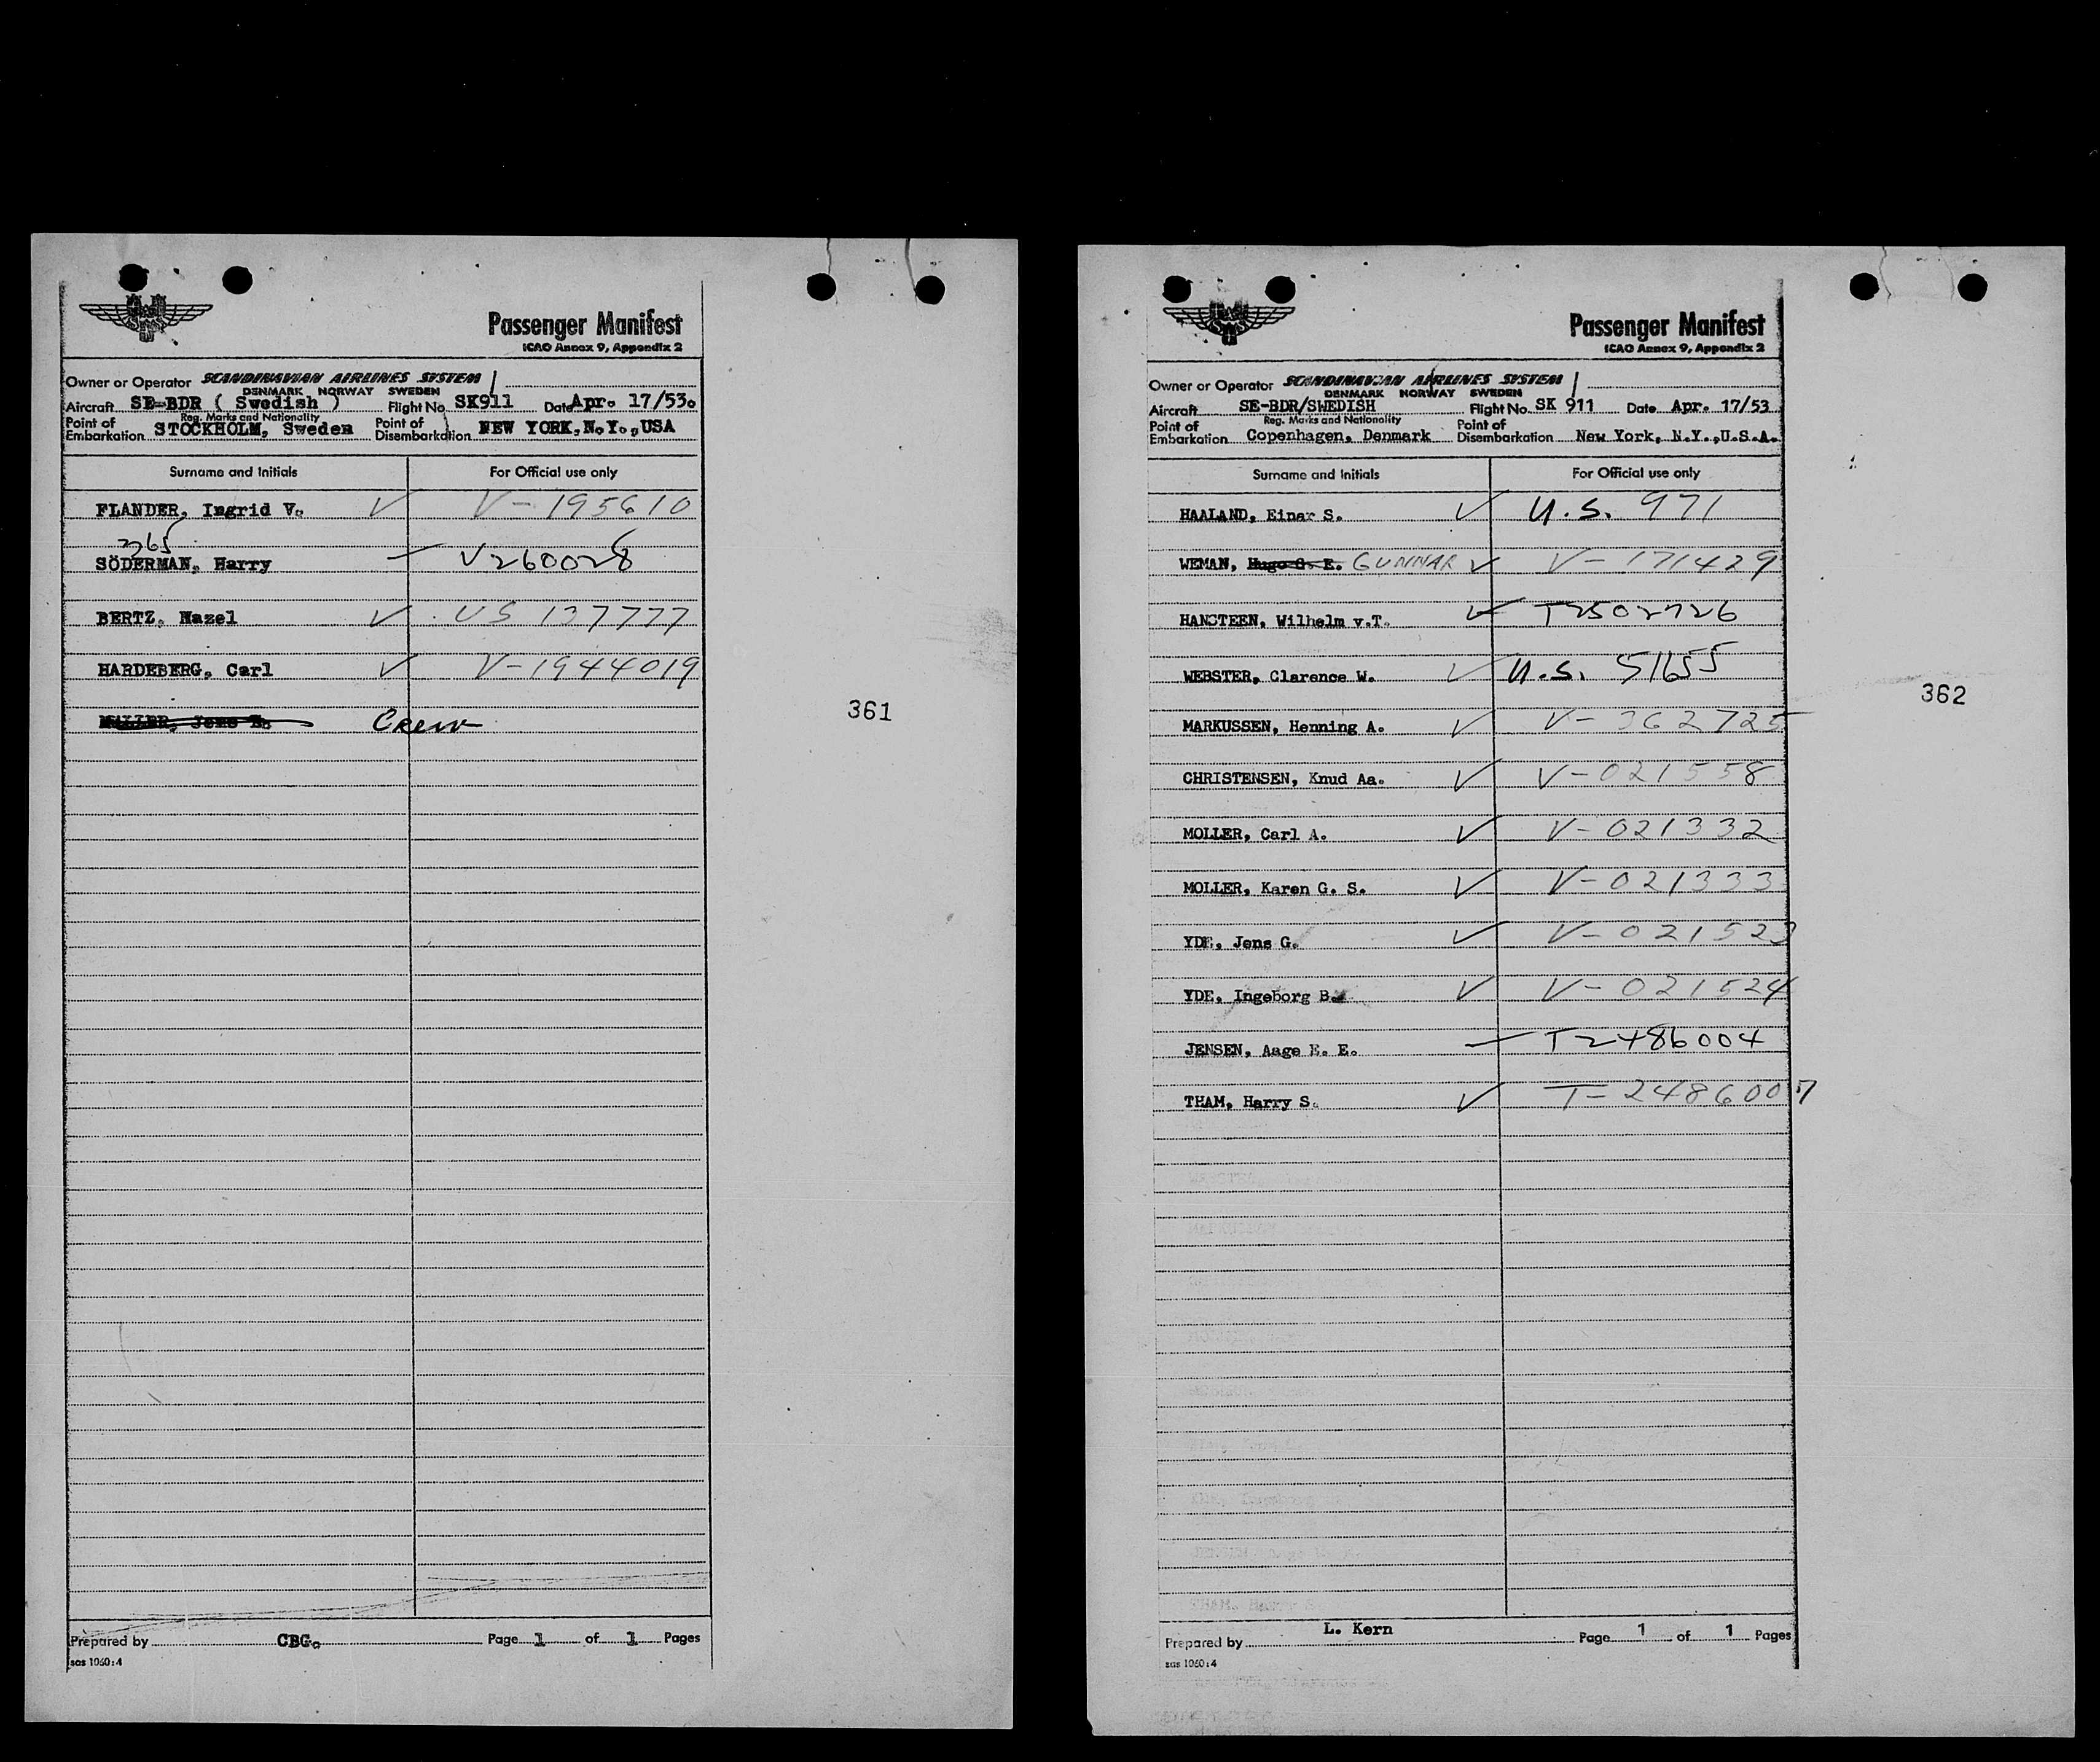 Passenger Manifest
ICAO Annex 9, Appendix 2
Owner or Operator SCANDINAVIAN AIRLINES SYSTEM
DENMARK NORWAY SWEDEN
Aircraft SE-BDR ( Swedish ) Flight No. SK911 Date Apr. 17/53.
Reg. Marks and Nationality
Point of Embarkation STOCKHOLM, Sweden Point of Disembarkation NEW YORK,N.Y.,USA
Surname and Initials For Official use only
FLANDER, Ingrid V. V-195610
SÖDERMAN, Harry V260028
BERTZ, Hazel US 137777
HARDEBERG, Carl V-1944019
Crew
Prepared by CBG. Page 1 of 1 Pages
sas 1060:4
361
Passenger Manifest
ICAO Annex 9, Appendix 2
Owner or Operator SCANDINAVIAN AIRLINES SYSTEM
DENMARK NORWAY SWEDEN
Aircraft SE-BDR/SWEDISH Flight No. SK 911 Date Apr. 17/53
Reg. Marks and Nationality
Point of Embarkation Copenhagen, Denmark Point of Disembarkation New York, N.Y.,U.S.A.
Surname and Initials For Official use only
HAALAND, Einar S. U.S. 971
WEMAN, Hugo G. E. GUNNAR V-171429
HANSTEEN, Wilhelm v.T. T2502726
WEBSTER, Clarence W. U.S. 51655
MARKUSSEN, Henning A. V-362725
CHRISTENSEN, Knud Aa. V-021558
MOLLER, Carl A. V-021332
MOLLER, Karen G. S. V-021333
YDE, Jens G. V-021523
YDE, Ingeborg B. V-021524
JENSEN, Aage E. E. T2486004
THAM, Harry S. T-2486007
Prepared by L. Kern Page 1 of 1 Pages
sas 1060:4
362